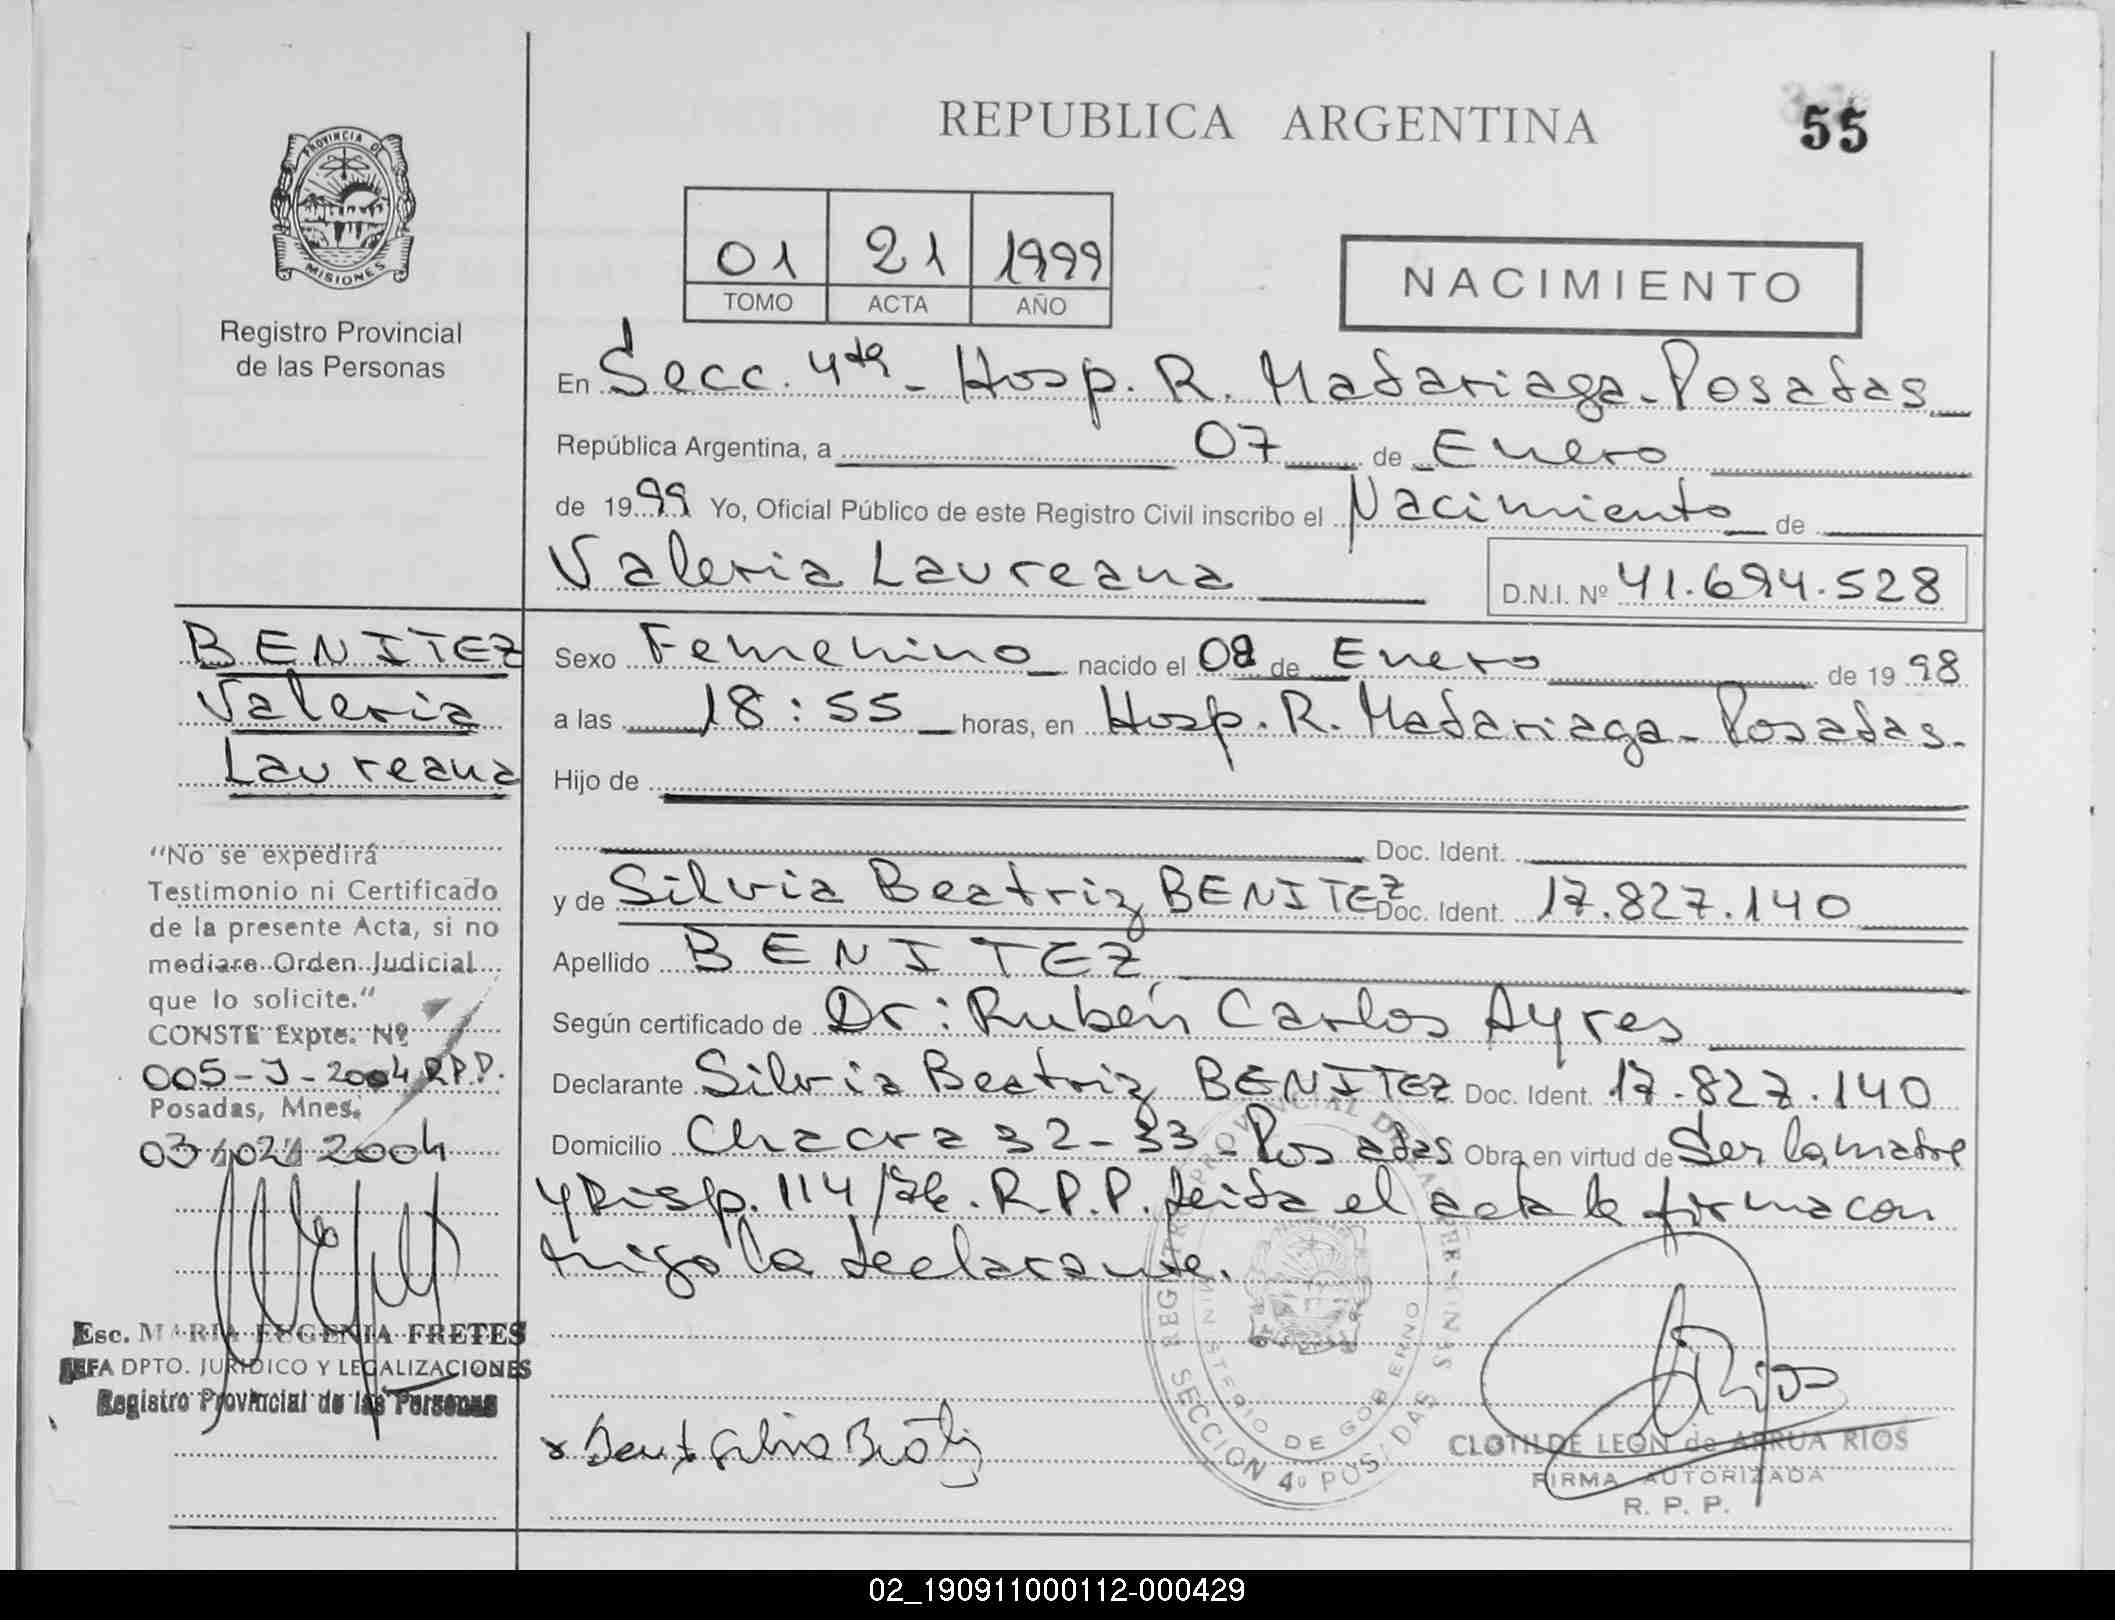 REPUBLICA ARGENTINA
55
PROVINCIA DE
MISIONES
Registro Provincial
de las Personas
01 21 1999
TOMO ACTA AÑO
NACIMIENTO
En Secc. 4ta - Hosp. R. Madariaga - Posadas
República Argentina, a 07 de Enero
de 1999 Yo, Oficial Público de este Registro Civil inscribo el Nacimiento de
Valeria Laureana D.N.I. Nº 41.694.528
Sexo Femenino nacido el 08 de Enero de 1998
a las 18:55 horas, en Hosp. R. Madariaga - Posadas.
Hijo de
Doc. Ident.
y de Silvia Beatriz BENITEZ Doc. Ident. 17.827.140
Apellido BENITEZ
Según certificado de Dr: Rubén Carlos Ayres
Declarante Silvia Beatriz BENITEZ Doc. Ident. 17.827.140
Domicilio Chacra 32-33 - Posadas Obra en virtud de Ser la madre
y Disp. 114/ R.P.P. leida el acta la firma con
migo la declarante.
BENITEZ
Valeria
Laureana
"No se expedirá
Testimonio ni Certificado
de la presente Acta, si no
mediare Orden Judicial
que lo solicite."
CONSTE Expte. Nº
005-J-2004 R.P.P.
Posadas, Mnes.
03/02/2004
Esc. MARIA EUGENIA FRETES
JEFA DPTO. JURIDICO Y LEGALIZACIONES
Registro Provincial de las Personas
REGISTRO PROVINCIAL DE LAS PERSONAS
MINISTERIO DE GOBIERNO
SECCION 4º POSADAS
CLOTILDE LEON de ARRUA RIOS
FIRMA AUTORIZADA
R. P. P.
02_190911000112-000429